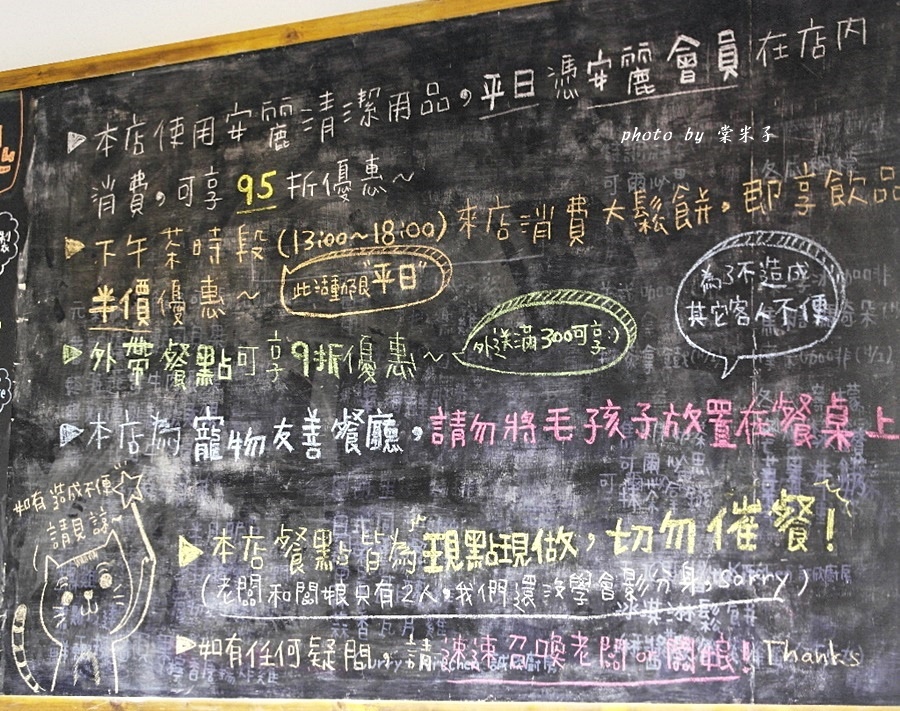 本店使用安麗清潔用品，平日憑安麗會員在店内
photo by 棠米子
消費，可享95折優惠～
下午茶時段(13:00~18:00)來店消費大鬆餅，即享飲品
半價優惠～
此活動限"平日"
為了不造成
其它客人不便
外帶餐點可享9折優惠～
外送滿300可享:)
本店為寵物友善餐廳，請勿將毛孩子放置在餐桌上
如有造成不便
請見諒~
本店餐點皆為現點現做，切勿催餐!
(老闆和闆娘只有2人，我們還沒學會影分身，sorry)
如有任何疑問，請速速召喚老闆or闆娘!! Thanks